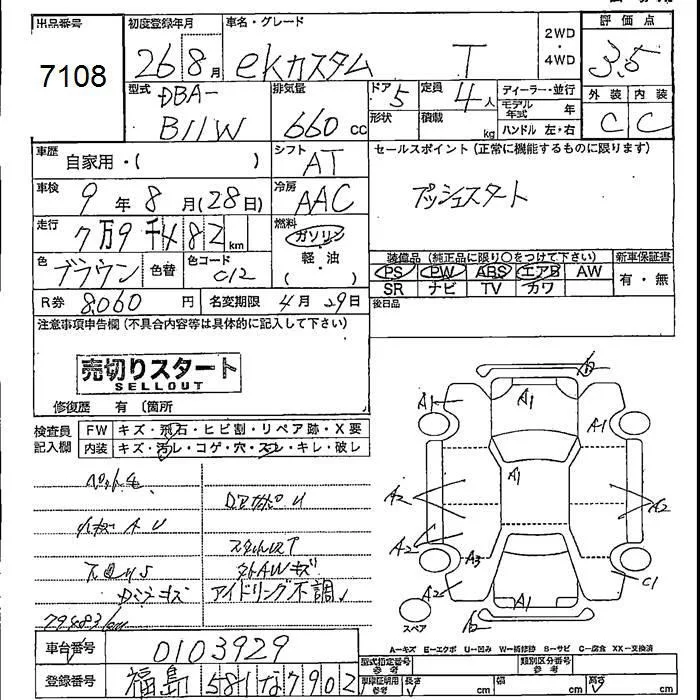 出品番号 初度登録年月 車名・グレード 評価点
7108 26 8月 eKカスタム T 2WD・4WD 3.5
型式 DBA-B11W 排気量 660 cc ドア形状 5 定員 4人 積載 kg ディーラー・並行 モデル年式 年 ハンドル 左・右 外装 C 内装 C
車歴 自家用・( ) シフト AT セールスポイント (正常に機能するものに限ります)
車検 9年 8月 (28日) 冷房 AAC プッシュスタート
走行 7万9千482 km 燃料 ガソリン・軽・油( )
色 ブラウン 色替 色コード C12 装備品 (純正品に限り○をつけて下さい) 新車保証書
PS PW ABS エアB AW 有・無
SR ナビ TV カワ
R券 8,060 円 名変期限 4月29日 後日品
注意事項申告欄 (不具合内容等は具体的に記入して下さい)
売切りスタート
SELLOUT
修復歴 有 〔箇所
検査員記入欄 FW キズ・飛石・ヒビ割・リペア跡・X要
内装 キズ・汚レ・コゲ・穴・スレ・キレ・破レ
ペット毛
アイドリング不調
79483km
A1 A1 A1
A1
A2 A2
A2 A3
A2 A1 C1
スペア
A=キズ E=エクボ U=凹み W=補修跡 S=サビ C=腐食 XX=交換済
車台番号 0103929 型式指定番号 参考 類別区分番号 参考
登録番号 福島 581 な 7902 長さ cm 幅 cm 高さ cm